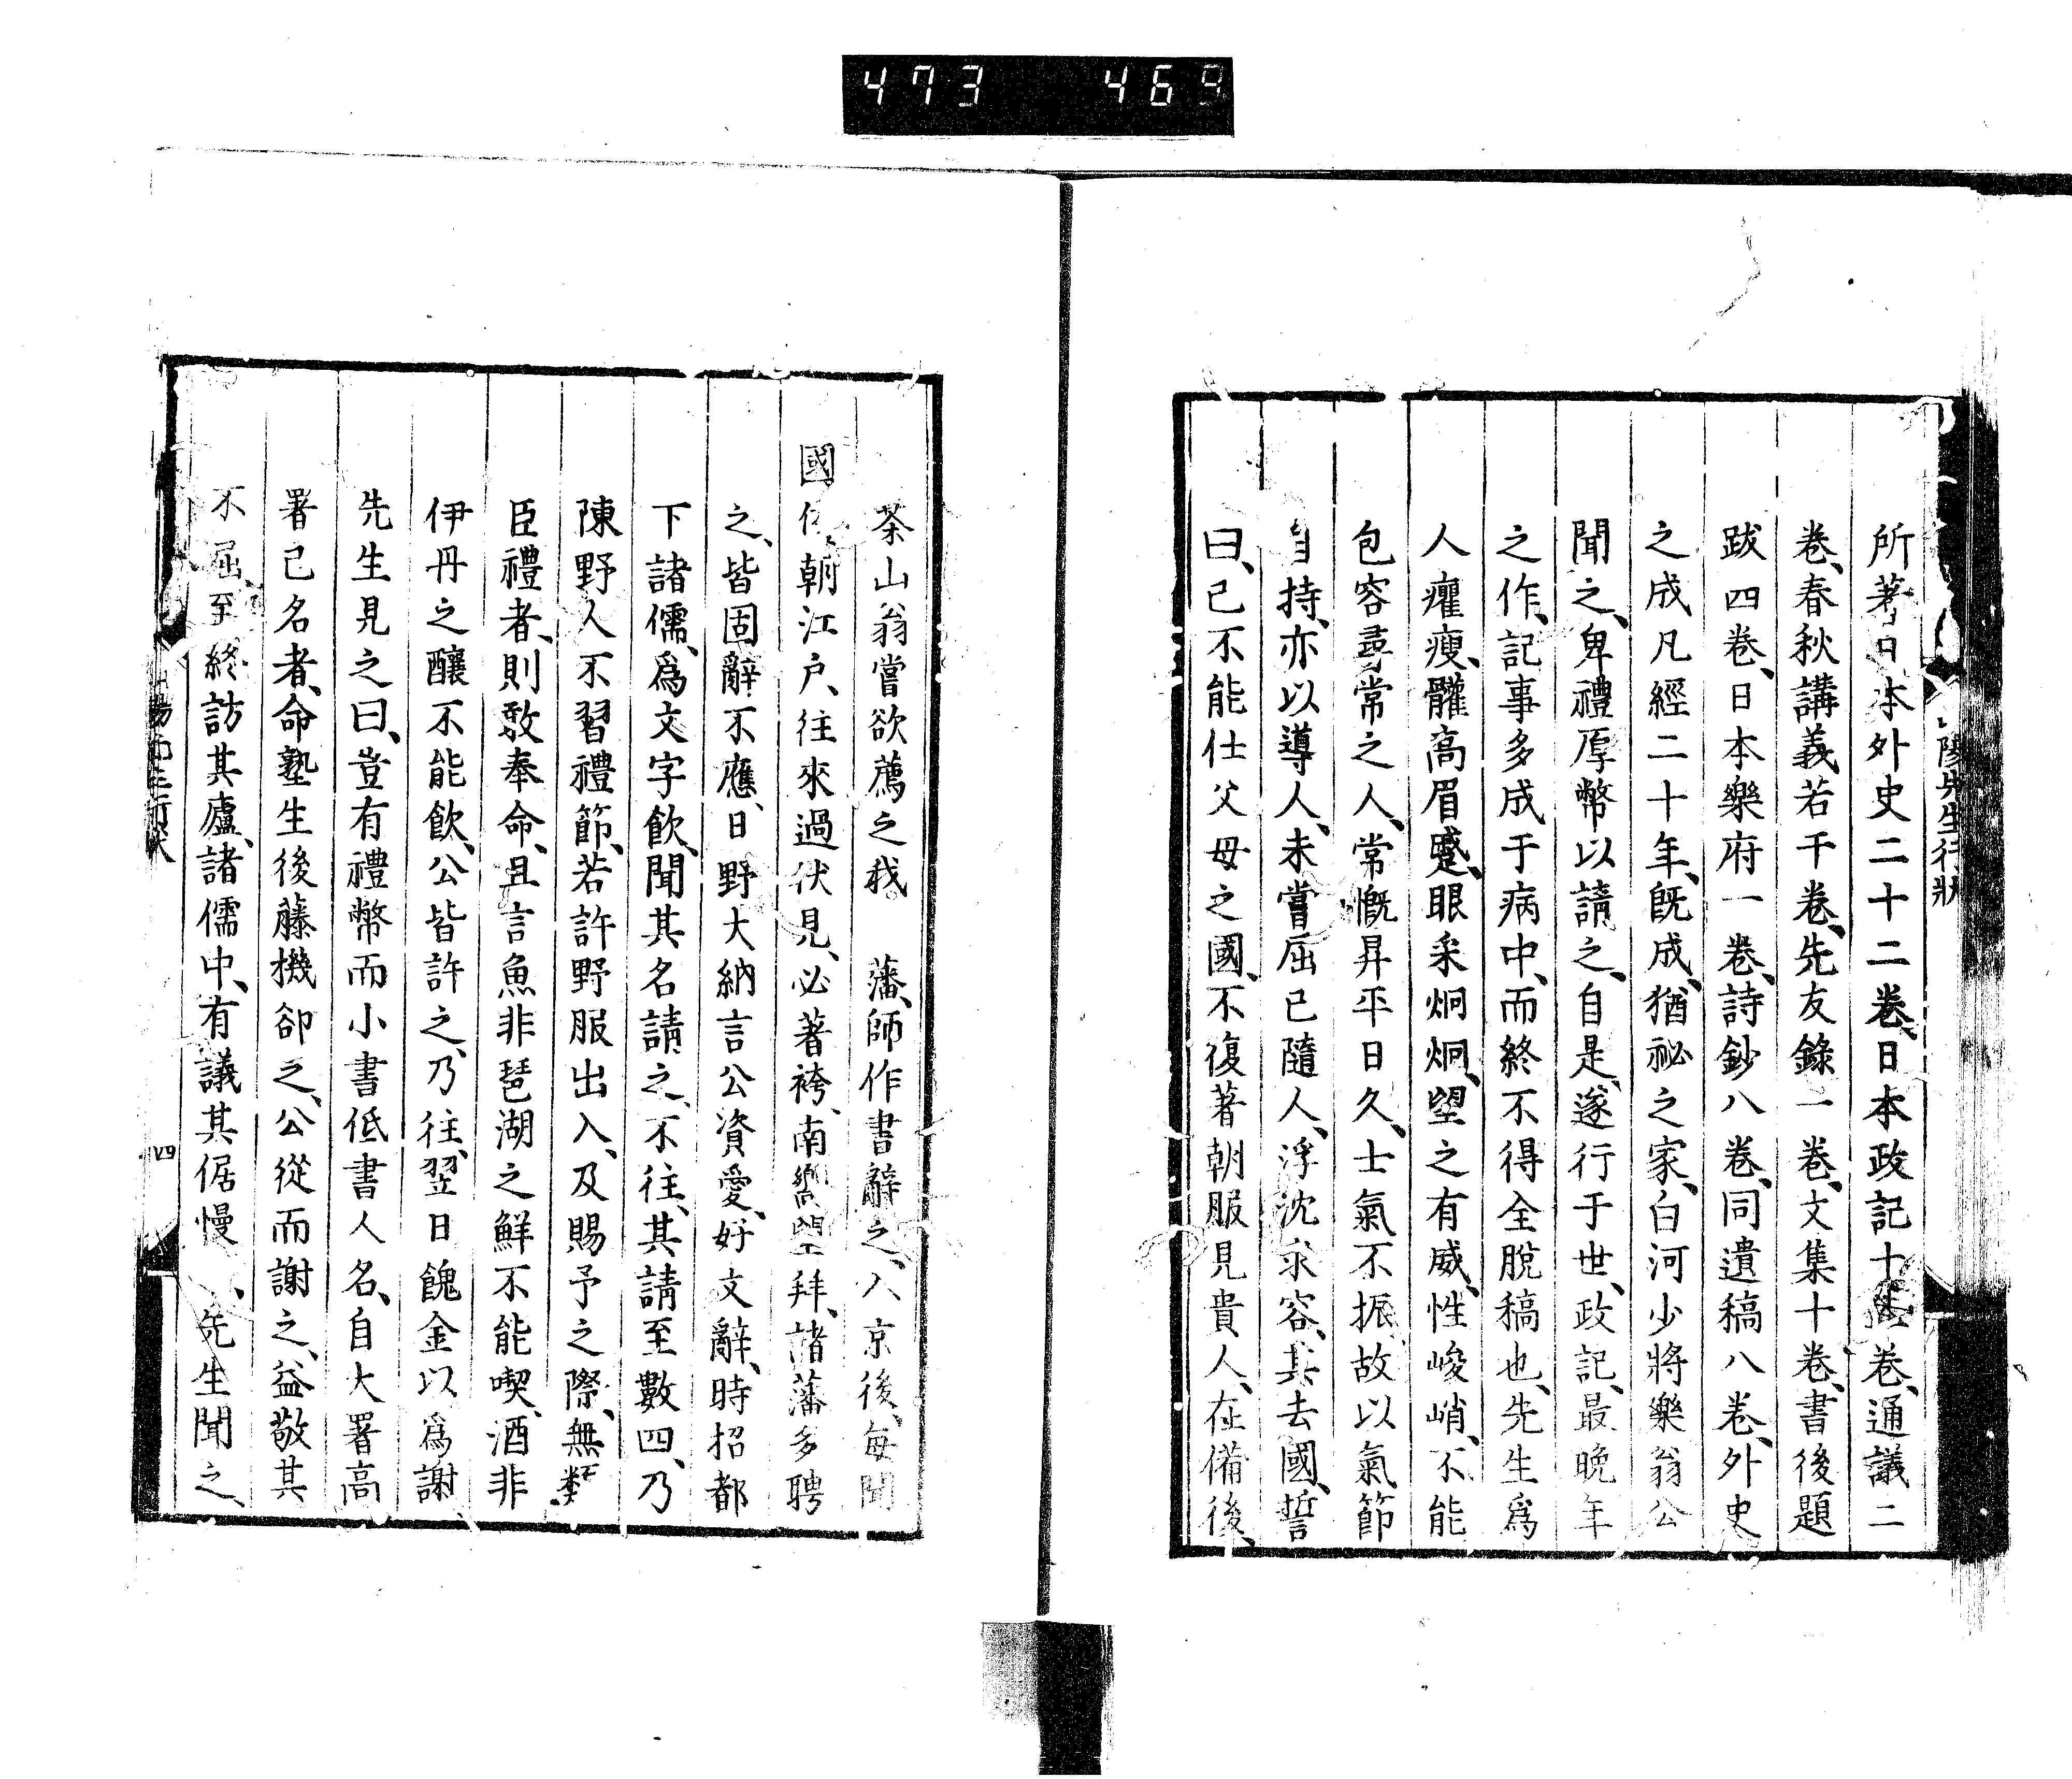 473 469
陽先生行狀
所著日本外史二十二卷、日本政記十卷、通議二
卷、春秋講義若干卷、先友錄一卷、文集十卷、書後題
跋四卷、日本樂府一卷、詩鈔八卷、同遺稿八卷、外史
之成凡經二十年、既成、猶祕之家、白河少將樂翁公
聞之、卑禮厚幣以請之、自是、遂行于世、政記、最晚年
之作、記事多成于病中、而終不得全脫稿也、先生爲
人癯瘦、髏高眉蹙、眼采炯炯、望之有威、性峻峭、不能
包容尋常之人、常慨昇平日久、士氣不振故以氣節
自持、亦以導人、未嘗屈已隨人、浮沈求容、其去國、誓
曰、已不能仕父母之國、不復著朝服見貴人、在備後、
茶山翁嘗欲薦之我 藩、師作書辭之、入京後、每聞
國 朝江戶、往來過伏見、必著袴、南嚮望拜、諸藩多聘
之、皆固辭不應、日野大納言公資愛、好文辭、時招都
下諸儒、爲文字飲、聞其名請之、不往、其請至數四、乃
陳野人不習禮節、若許野服出入、及賜予之際、無類
臣禮者、則敢奉命、且言魚非琶湖之鮮不能喫、酒非
伊丹之釀不能飲、公皆許之、乃往、翌日餽金以爲謝、
先生見之曰、豈有禮幣而小書低書人名、自大署高
署己名者、命塾生後藤機卻之、公從而謝之、益敬其
不屈至終訪其廬、諸儒中、有議其倨慢 、先生聞之、
四